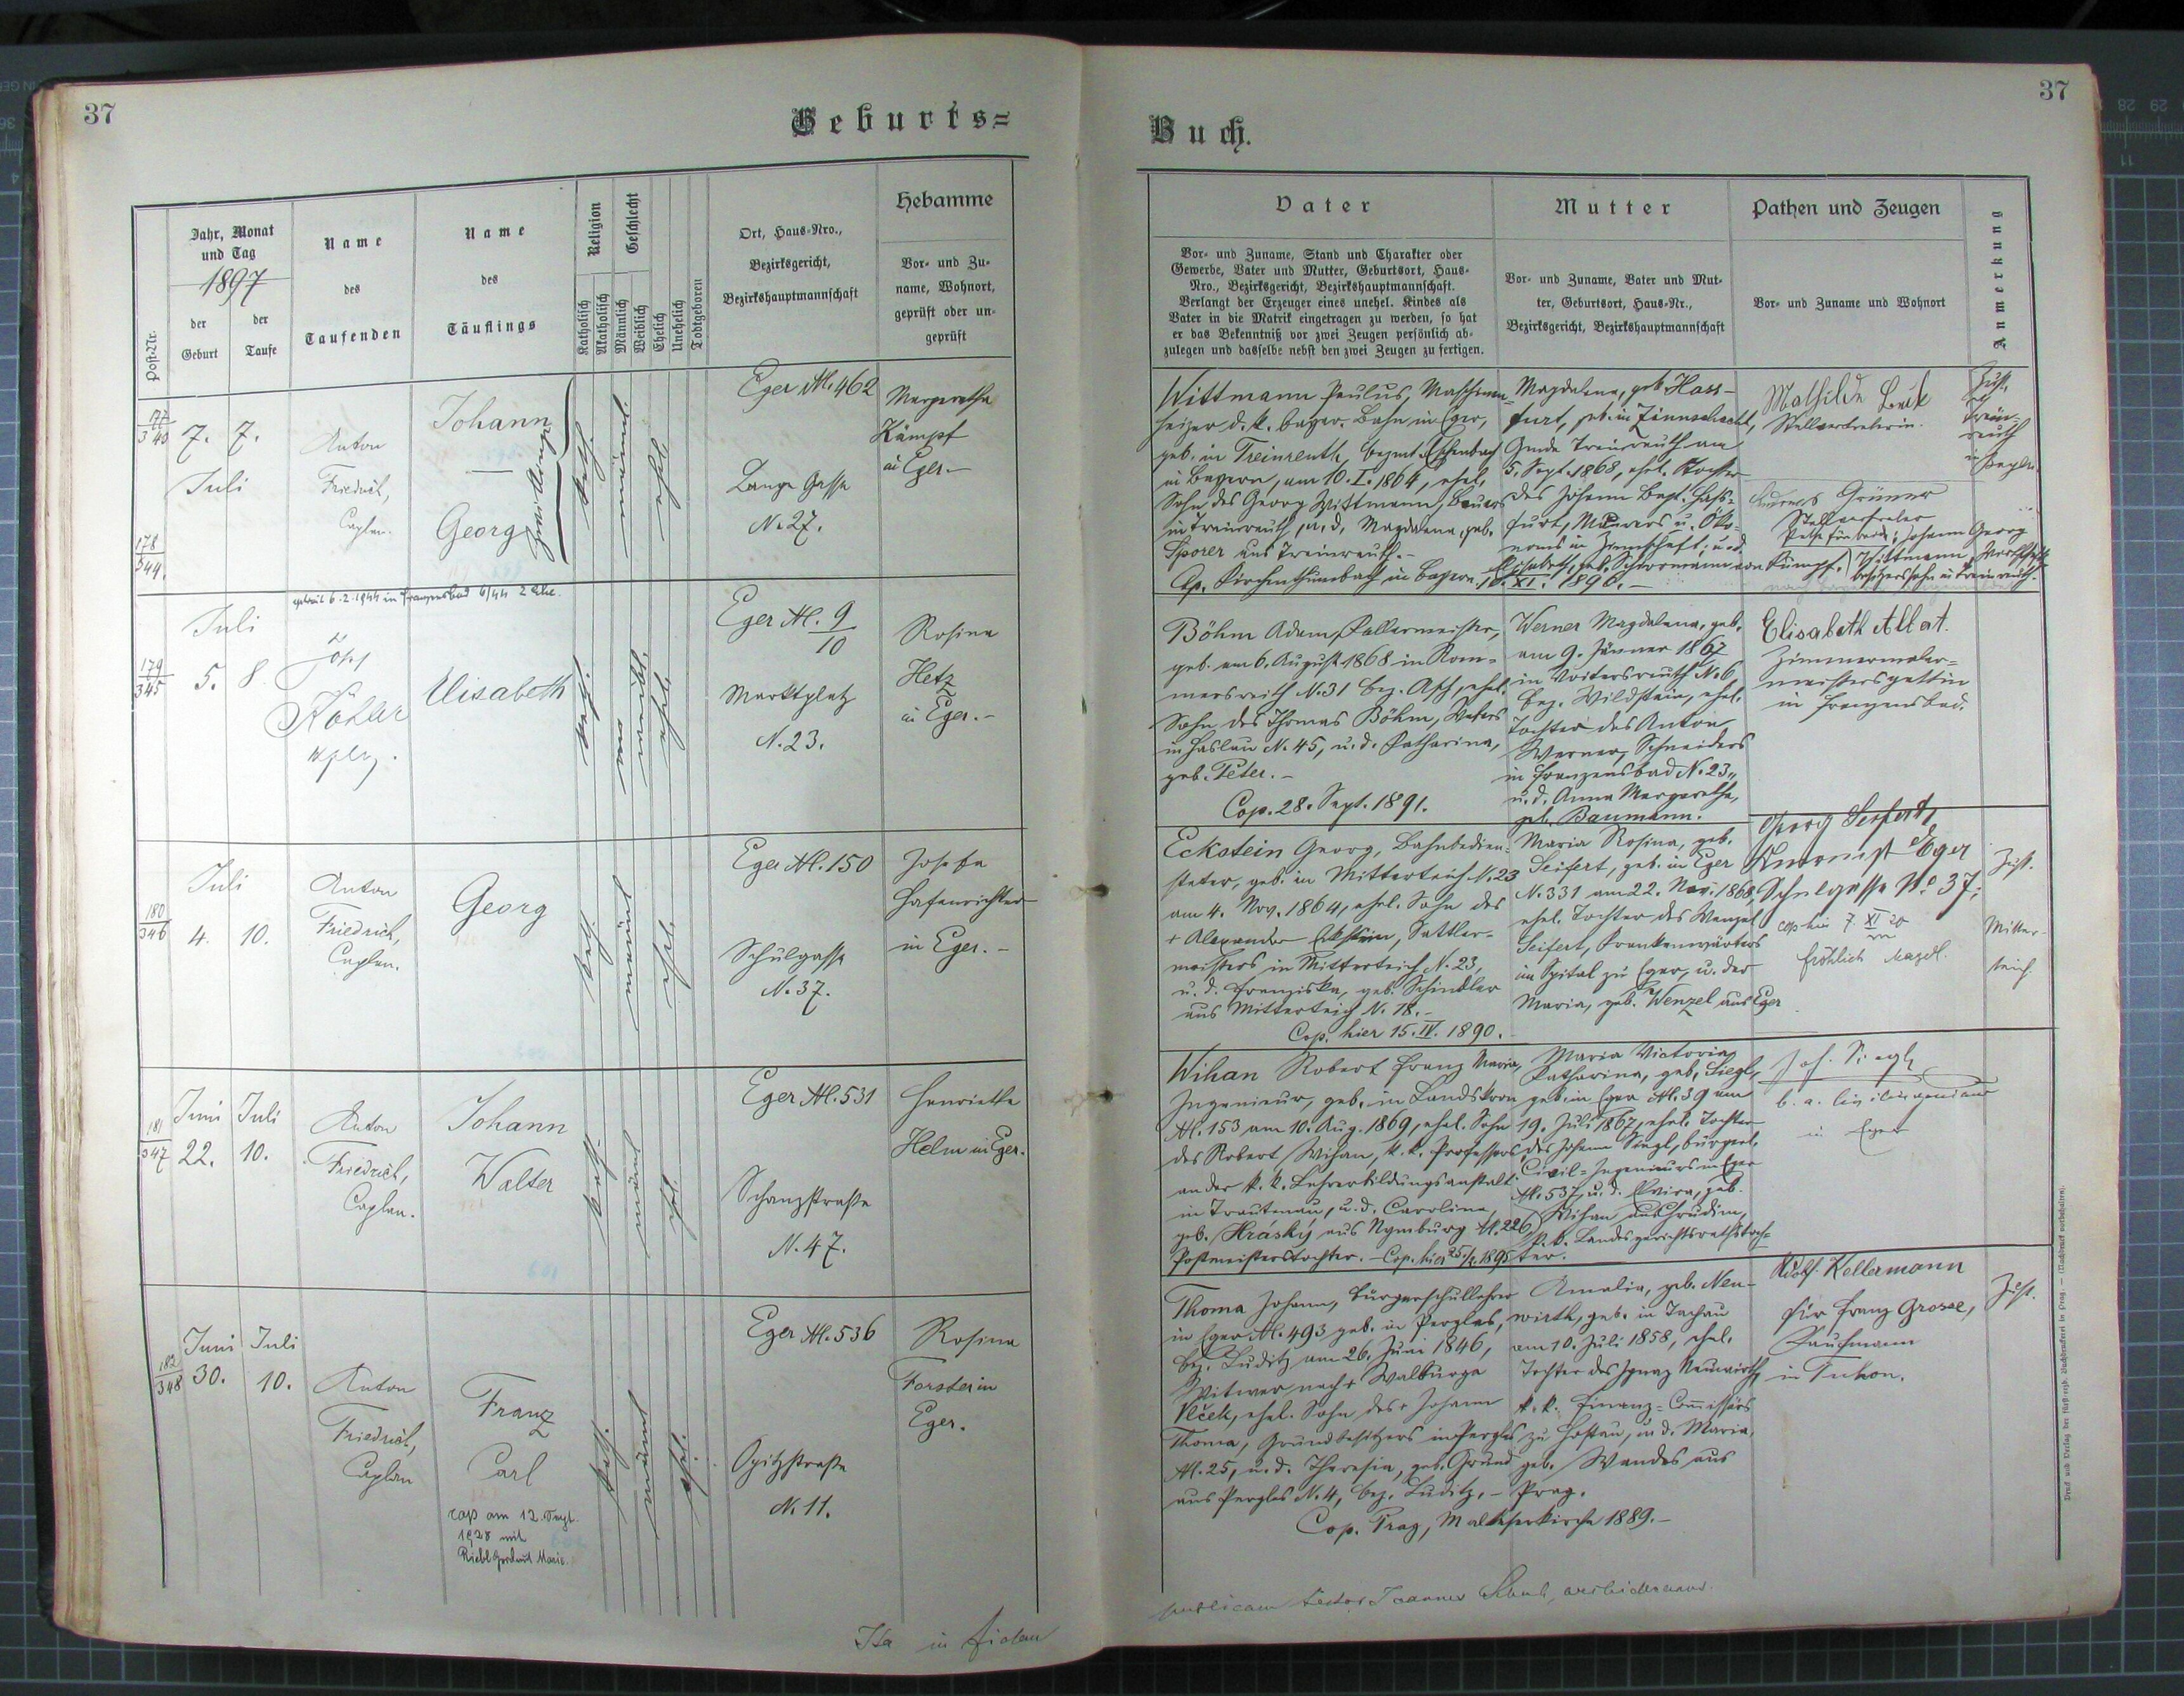 37
Geburts=
Post-Nr.
Jahr, Monat
und Tag
1897
der
Geburt
der
Taufe
Name
des
Taufenden
Name
des
Täuflings
Religion
Katholisch
Akatholisch
Geschlecht
Männlich
Weiblich
Ehelich
Unehelich
Todtgeboren
Ort, Haus-Nro.,
Bezirksgericht,
Bezirkshauptmannschaft
Hebamme
Vor- und Zu-
name, Wohnort,
geprüft oder un-
geprüft
177
343
7. 7.
Juli
178
344.
Anton
Friedrich,
Caplan.
Johann
—
Georg
Zwillinge
kath.
männl.
ehel.
Eger Nr. 462
Lange Gasse
N. 27.
Margaretha
Kämpf
in Eger.–
getraut 6.2.1944 in Franzensbad 6/44 2 Ehe.
Juli
179
345
5. 8.
Köhler
Kpl.
Elisabeth
kath.
weibl.
ehel.
Eger Nr. 9
10
Marktplatz
N. 23.
Rosina
Hetz
in Eger.–
Juli
180
346
4. 10.
Anton
Friedrich,
Caplan.
Georg
kath.
männl.
ehel.
Eger Nr. 150
Schulgasse
N. 37.
Josefa
Hafenrichter
in Eger.–
Juni Juli
181
347
22. 10.
Anton
Friedrich,
Caplan.
Johann
Walter
kath.
männl.
ehl.
Eger Nr. 531
Schanzstraße
N. 47.
Henriette
Helm in Eger.
Juni Juli
182
348
30. 10.
Anton
Friedrich,
Caplan
Franz
Carl
cop am 12. Sept.
1928 mit
Riebl Gertrud Marie.
kath.
männl.
ehel.
Eger Nr. 536
Opitzstraße
N. 11.
Rosina
Forster in
Eger.
Ita in fidem
37
Buch.
Vater
Vor- und Zuname, Stand und Charakter oder
Gewerbe, Vater und Mutter, Geburtsort, Haus-
Nro., Bezirksgericht, Bezirkshauptmannschaft.
Verlangt der Erzeuger eines unehel. Kindes als
Vater in die Matrik eingetragen zu werden, so hat
er das Bekenntniß vor zwei Zeugen persönlich ab-
zulegen und dasselbe nebst den zwei Zeugen zu fertigen.
Mutter
Vor- und Zuname, Vater und Mut-
ter, Geburtsort, Haus-Nr.,
Bezirksgericht, Bezirkshauptmannschaft
Pathen und Zeugen
Vor- und Zuname und Wohnort
Anmerkung
Wittmann Paulus, Maschinen-
heizer d. k. bayer. Bahn in Eger,
geb. in Treinreuth, bezmt. Eschenbach
in Bayern, am 10. I. 1864, ehel.
Sohn des Georg Wittmann, Bauers
in Treinreuth, u. d. Magdalena, geb.
Sporer aus Treinreuth.–
Cop. Kirchenthumbach in Bayern 10. XI. 1890.–
Magdalena, geb. Hass-
furt, geb. in Zinnschacht,
Gmde Treinreuth am
5. Sept. 1868, ehel. Tochter
des Johann Bapt. Hass-
furt, Maurers u. Öko-
noms in Zinnschacht, u. d.
Elisabeth, geb.
Mathilde
Stellvertreterin.
Grüner
Stellvertreter
Pathe für beide: Johann Georg
Wittmann
besitzerssohn in Treinreuth.
Zust.
Trein-
reuth
in Bayern.
Böhm Adam, Kellermeister,
geb. am 6. August 1868 in Rom-
mersreith N. 31 bez. Asch, ehel.
Sohn des Thomas Böhm, Webers
in Haslau N. 45, u. d. Katharina,
geb. Peter.–
Cop. 28. Sept. 1891.
Werner Magdalena, geb.
am 9. Jänner 1867
in Voitersreuth N. 6,
bez. Wildstein, ehel.
Tochter des Anton
Werner, Schneiders
in Franzensbad N. 23,
u. d. Anna Margaretha,
geb. Baumann.
Elisabeth Allat.
Zimmermaler-
meistersgattin
in Franzensbad.
Eckstein Georg, Bahnbedien-
steter, geb. in Mitterteich N. 23
am 4. Nov. 1864, ehel. Sohn des
+ Alexander Eckstein, Sattler-
meisters in Mitterteich N. 23,
u. d. Franziska, geb. Schindler
aus Mitterteich N. 18.–
Cop. hier 15. IV. 1890.
Maria Rosina, geb.
Seifert, geb. in Eger
N. 331 am 22. Nov. 1868,
ehel. Tochter des Wenzel
Seifert, Krankenwärters
im Spital zu Eger, u. der
Maria, geb. Wenzel aus Eger
Georg Seifert,
Eger
Schulgasse No 37.
cop hier 7. XI 20
Fröhlich Magd.
Zust.
Mitter-
teich.
Wihan Robert Franz Maria,
Ingenieur, geb. in Landskron
Nr. 153 am 10. Aug. 1869, ehel. Sohn
des Robert Wihan, k. k. Professors
an der k. k. Lehrerbildungsanstalt
in Trautenau, u. d. Carolina,
geb. Hráský aus Nymburg Nr. 226,
Postmeisterstochter.– Cop. hier
Maria Victoria
Katharina, geb. Siegl,
geb. in Eger Nr. 39 am
19. Juli 1867, ehel. Tochter
des Johann Siegl, bürgerl.
Civil-Ingenieurs in Eger
Nr. 537, u. d. Elvira, geb.
Wihan aus Chrudim,
k. k. Landesgerichtsrathstoch-
ter.
Joh. Siegl
b. a. Civilingenieur
in Eger
Thoma Johann, Bürgerschullehrer
in Eger Nr. 493 geb. in Perglas,
bez. Luditz am 26. Juni 1846,
Witwer nach + Walburga
Vlček, ehel. Sohn des + Johann
Thoma, Grundbesitzers in Perglas
Nr. 25, u. d. Theresia, geb. Grund
aus Perglas N. 4, bez. Luditz.–
Cop. Prag, Maltheserkirche 1889.–
Amalia, geb. Neu-
wirth, geb. in Tachau
am 10. Juli 1858, ehel.
Tochter des Ignaz Neuwirth,
k. k. Finanz-Commissärs
zu Hostau, u. d. Maria,
geb. Wandes aus
Prag.
Adolf Kellermann
für Franz Grosse,
Kaufmann
in
Zust.
publicam testor Joannes